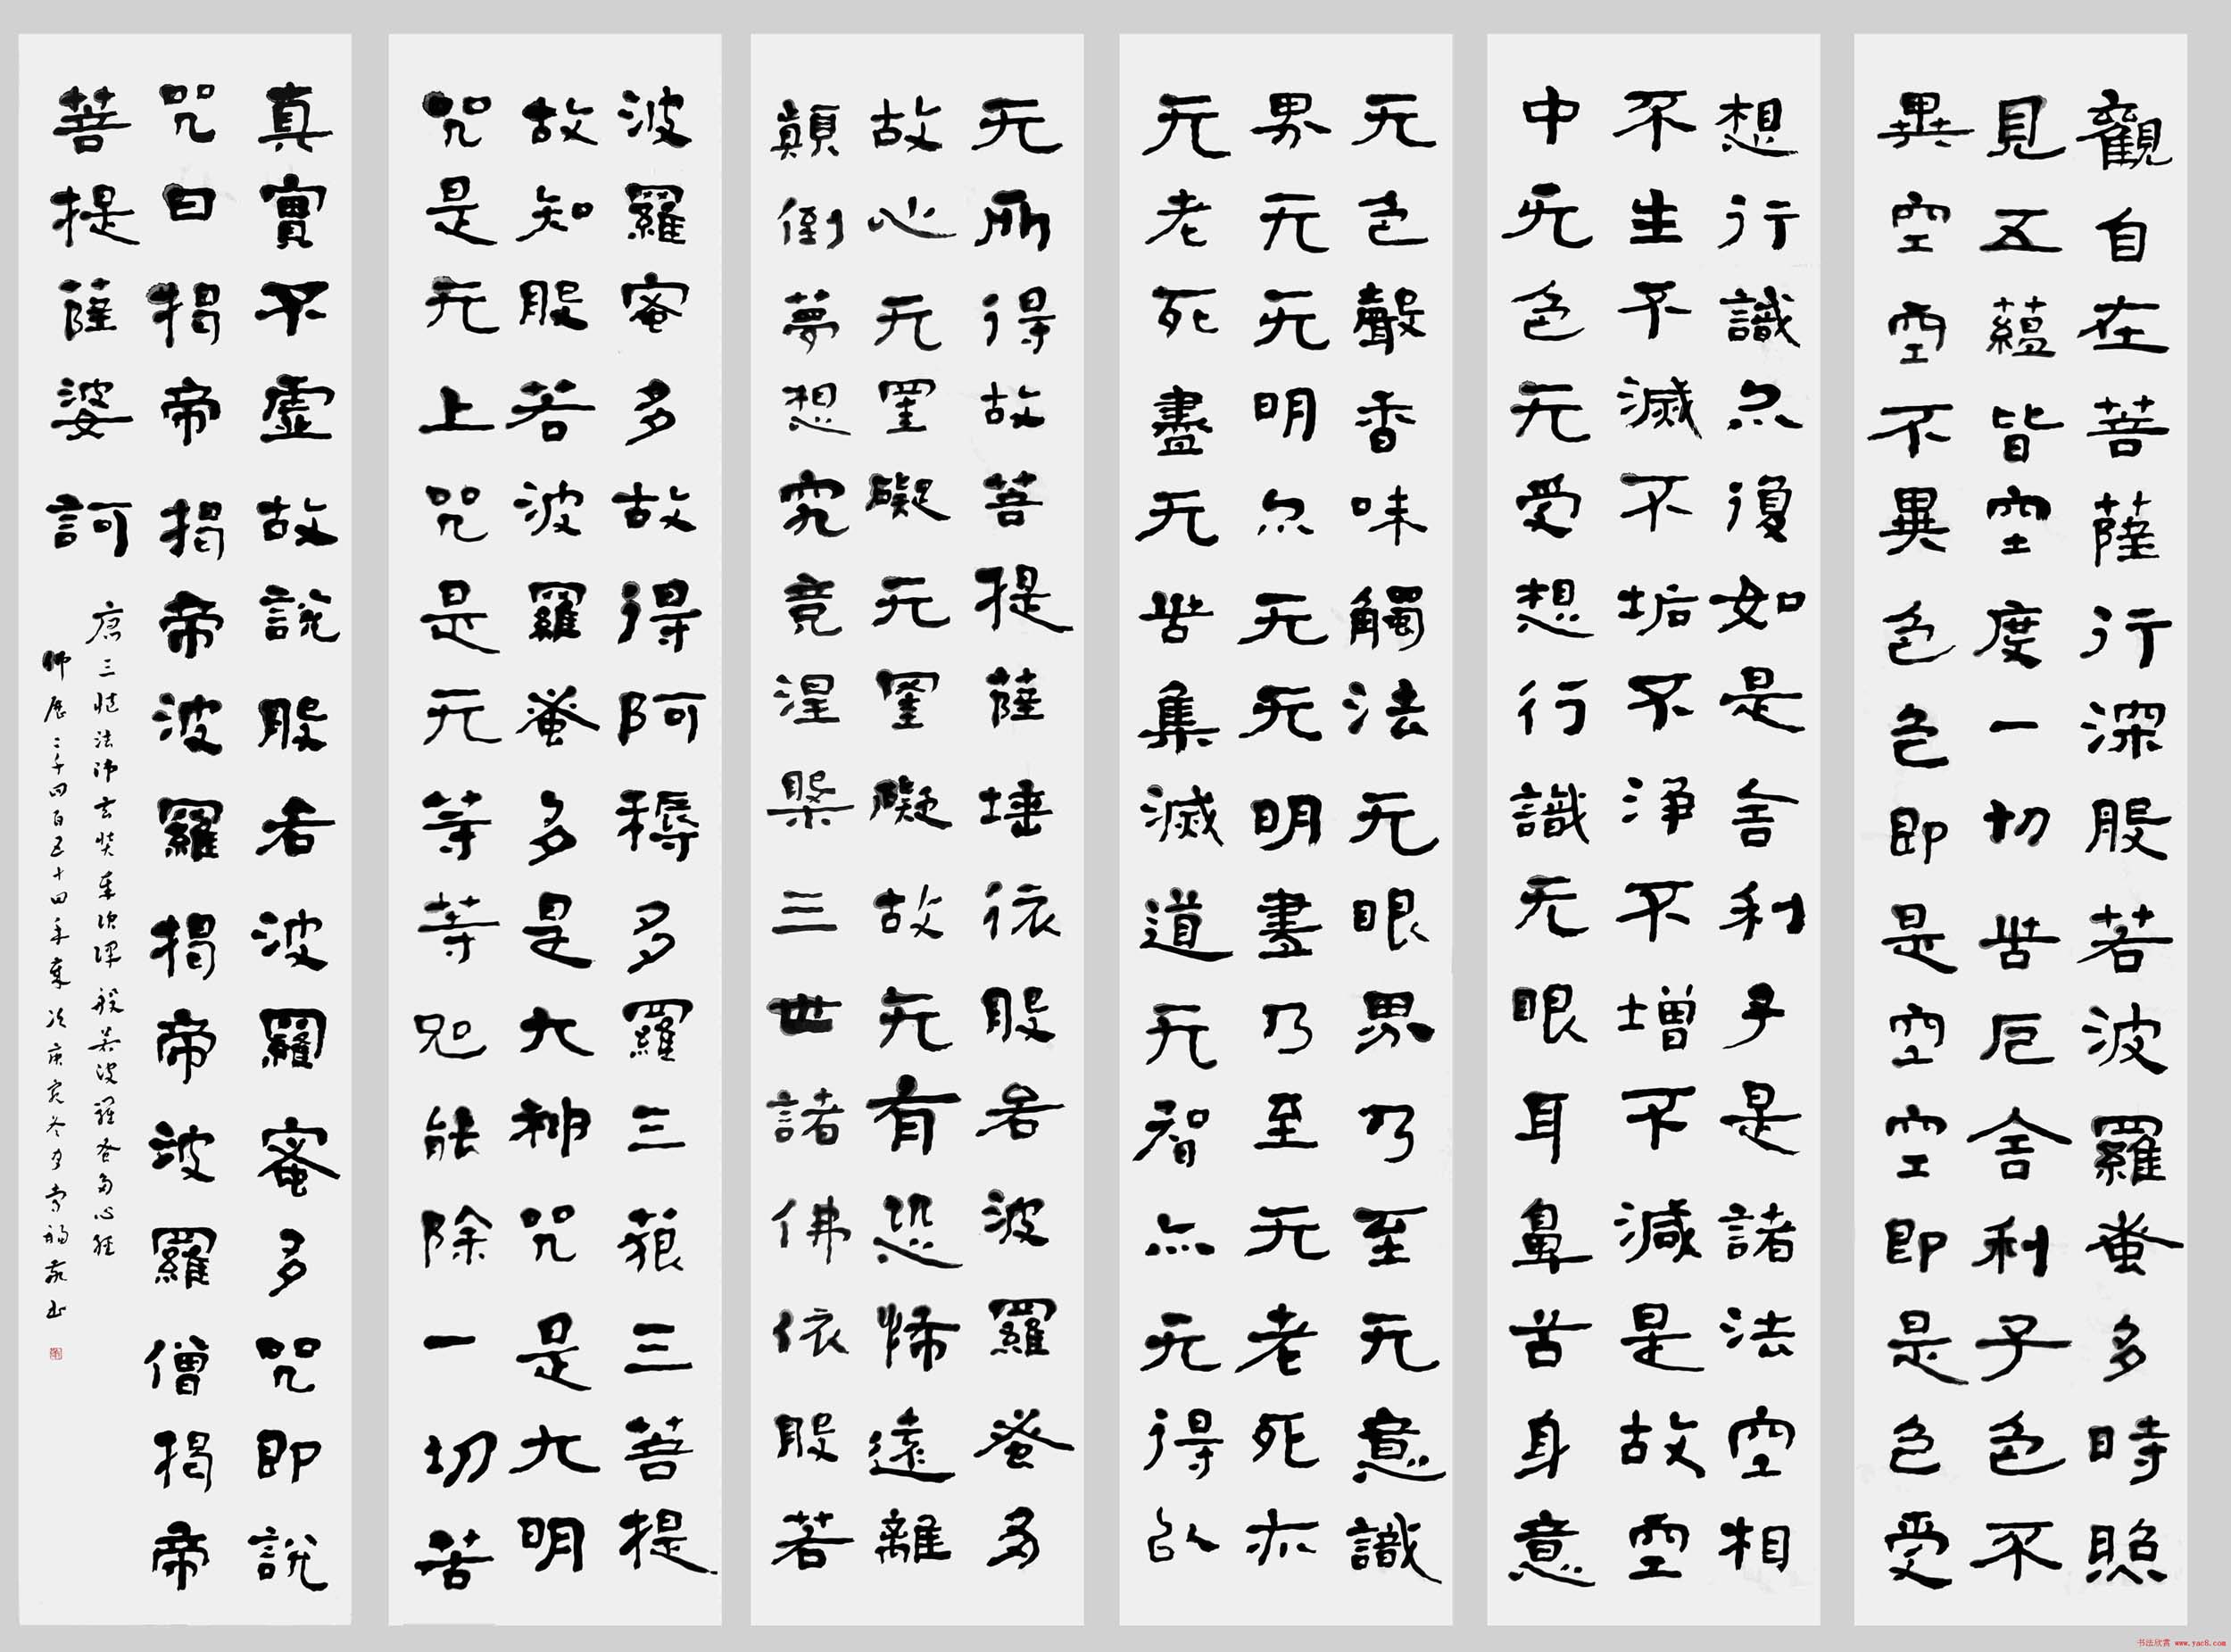 觀自在菩薩行深般若波羅蜜多時照
見五蘊皆空度一切苦厄舍利子色不
異空空不異色色即是空空即是色受
想行識亦復如是舍利子是諸法空相
不生不滅不垢不淨不增不減是故空
中无色无受想行識无眼耳鼻舌身意
无色聲香味觸法无眼界乃至无意識
界无无明亦无无明盡乃至无老死亦
无老死盡无苦集滅道无智亦无得以
无所得故菩提薩埵依般若波羅蜜多
故心无罣礙无罣礙故无有恐怖遠離
顛倒夢想究竟涅槃三世諸佛依般若
波羅蜜多故得阿耨多羅三藐三菩提
故知般若波羅蜜多是大神咒是大明
咒是无上咒是无等等咒能除一切苦
真實不虛故說般若波羅蜜多咒即說
咒曰揭帝揭帝波羅揭帝波羅僧揭帝
菩提薩婆訶
唐三藏法師玄奘奉詔譯般若波羅蜜多心經
佛歷二千四百五十四年歲次庚寅冬月
书法欣赏 www.yac8.com